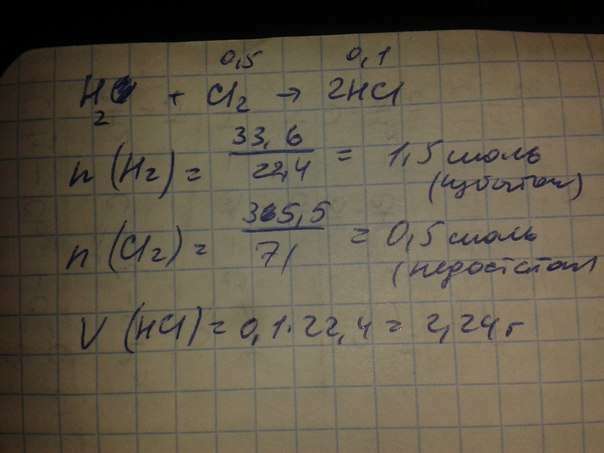 0,5 0,1
H₂ + Cl₂ → 2HCl
n (H₂) = 33,6 / 22,4 = 1,5 моль
(избыток)
n (Cl₂) = 35,5 / 71 = 0,5 моль
(недостаток)
V (HCl) = 0,1·22,4 = 2,24 г